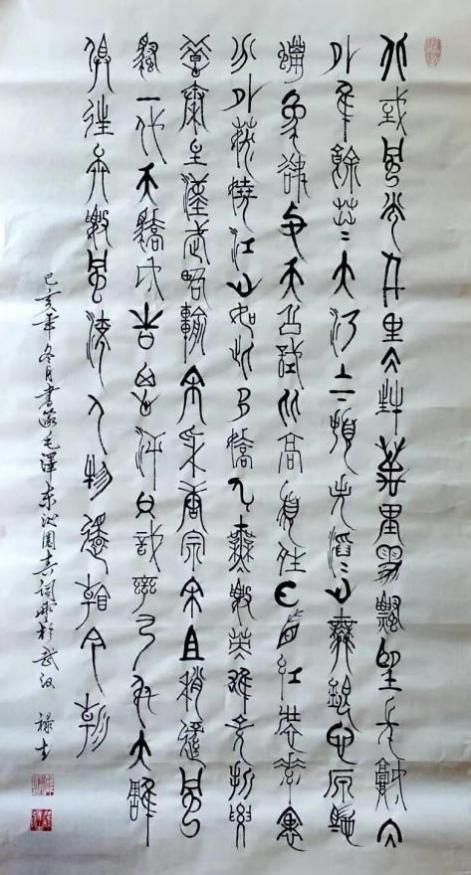 北國風光千里冰封萬里雪飄望長城內
外惟餘莽〻大河上下頓失滔〻山舞銀蛇原馳
蠟象欲與天公試比高須晴日看紅裝素裹
分外妖嬈江山如此多嬌引無數英雄競折腰
惜秦皇漢武略輸文采唐宗宋祖稍遜風
騷一代天驕成吉思汗只識彎弓射大雕
俱往矣數風流人物還看今朝
己亥年冬月書錄毛澤東沁園春詞雪於武汉 禄